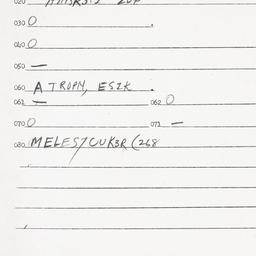 020
030 O .
040 O
050 —
060 A TROPN, ESZK .
061 — 062 O
070 O 071 —
080 MELESTCUKBR (268